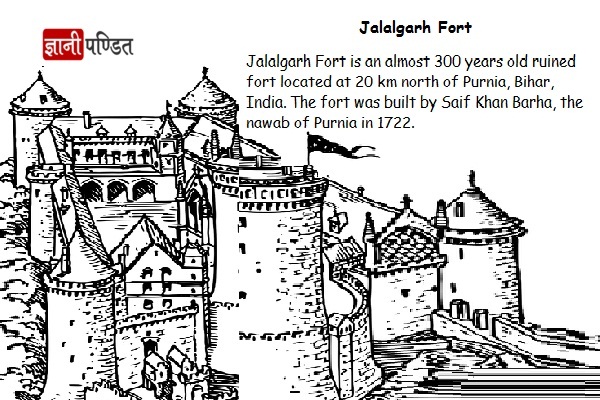 Jalalgarh Fort
ज्ञानी पण्डित
Jalalgarh Fort is an almost 300 years old ruined
fort located at 20 km north of Purnia, Bihar,
India. The fort was built by Saif Khan Barha, the
nawab of Purnia in 1722.